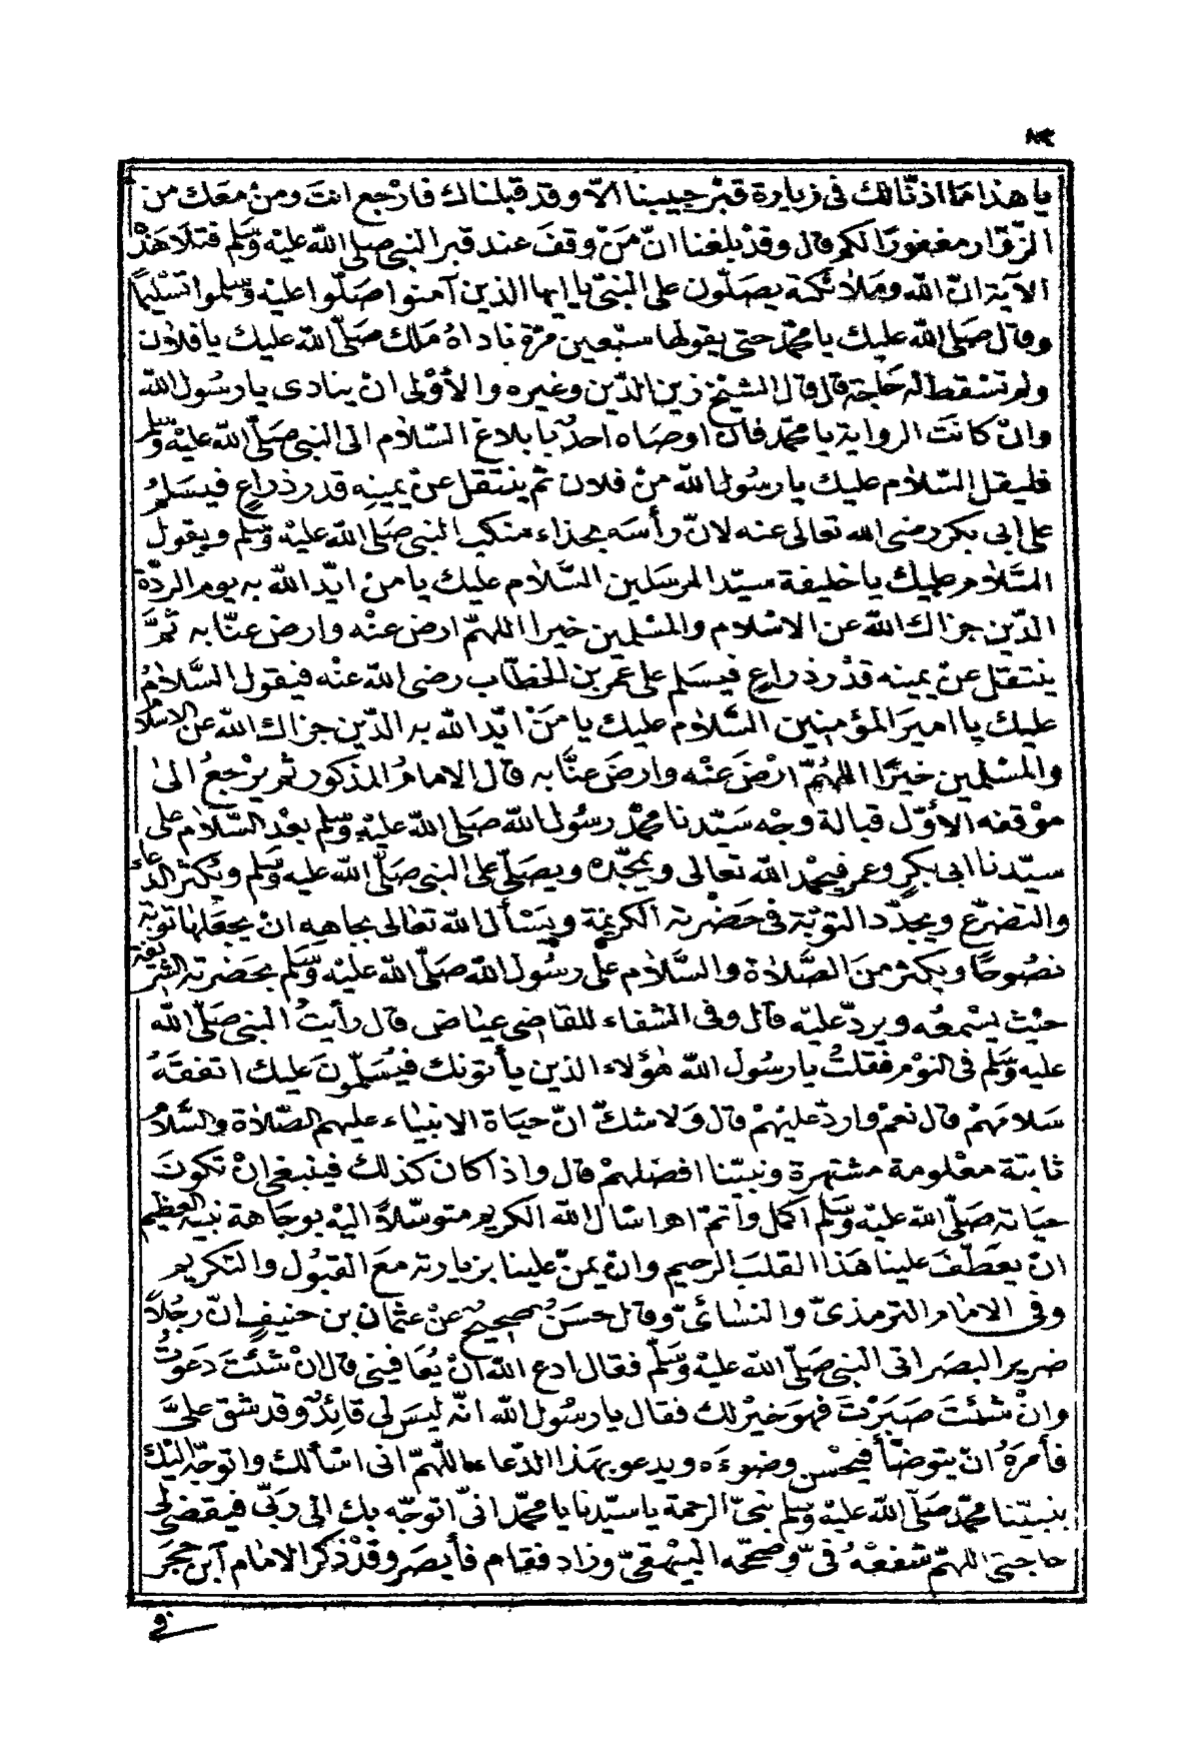 ٨٣
يا هذا ما اذنّا لك فى زيارة قبْر حبيبنا الّا وقد قبلناك فارْجع انتَ ومنْ معَك من
الزّوّار مغفورًا لكم قال وقدْ بلغنا انّ مَنْ وقفَ عند قبر النبى صلى اللّه عليْه وسَلم فتلَا هَذهْ
الآية انّ اللّه ومَلائكته يصَلّون على النبىّ يا ايها الذين آمنوا صَلّوا عليْه وسَلموا تسْليمًا
وقال صَلى اللّه عليك يا محمّد حتى يقولها سبْعين مرّة ناداهُ مَلك صَلّى اللّه عليك يا فلان
ولم تسْقط له حَاجة قال قال الشيخ زين الدّين وغيره والأوْلى انْ ينادى يا رسُول اللّه
وانْ كانَت الرواية يا محمّد فان اوصَاه احدٌ بابلاغ السّلام الى النبى صَلّى اللّه عليْه وسَلم
فليقل السّلام عليك يا رسُول اللّه منْ فلان ثم ينتقل عنْ يمينِه قدر ذراعٍ فيسَلمُ
على ابى بكر رضى اللّه تعالى عنه لانّ رأسَه بحذاء منكب النبى صَلى اللّه عليْه وسَلم ويقول
السَّلام عليك يا خليفة سيّد المرسَلين السَّلام عليك يا من ايّد اللّه به يوم الردّة
الدّين جزاك اللّه عن الاسْلام والمسْلمين خيرا اللهمّ ارض عنْه وارض عنّا به ثمَّ
ينتقل عنْ يمينه قدْر ذراعٍ فيسَلم على عمَر بن الخطّاب رضى اللّه عنْه فيقول السَّلامُ
عليك يا اميرَ المؤمنين السَّلام عليك يا مَنْ ايّد اللّه به الدّين جزاك اللّه عن الاسْلام
والمسْلمين خيْرًا اللهُمّ ارْضَ عَنْه وارضَ عنَّا به قال الامامُ المذكور ثم يرْجعُ الىٰ
موْقفه الأوّل قبالة وجْه سَيّدنا محمّد رسُول اللّه صَلى اللّه عليْه وسَلم بعْد السَّلام على
سيّدنا ابى بكرٍ وعمر فيحْمد اللّه تعالى ويمجّده ويصَلّى على النبى صَلّى اللّه عليْه وسَلم ويُكثر الدّعاء
والتضرّع ويجدّد التوْبَة فى حَضْرته الكريمَة ويسْأل اللّه تعَالى بجاهِه انْ يجعَلها توبَة
نصُوحًا ويكثر منَ الصَّلاة والسَّلام على رسُول اللّه صَلّى اللّه عليْه وسَلم بحَضرته الشريفة
حيْث يسْمعُه ويردّ عليْه قال وفى الشفاء للقاضى عيَاض قال رأيتُ النبى صَلّى اللّه
عليه وسَلم فى النوْم فقلتُ يا رسُول اللّه هٰؤلاء الذين يأتونك فيُسَلّمونَ عليك اتفقَهُ
سَلامَهمْ قال نعَمْ واردّ عليْهمْ قال وَلا شكّ انّ حيَاة الانبيَاء عليهم الصّلاة والسَّلامُ
ثابتة معْلومة مشتهرة ونبيّنا افضَلهمْ قال واذا كان كذلك فينبغى انْ تكونَ
حيَاته صَلّى اللّه عليْه وسَلم اكمل وأتمّ اهـ واسْأل اللّه الكريم متوسّلاً اليْه بوجَاهة نبيّه العظيم
انْ يعَطّفَ علينا هَذا القلبَ الرحيم وانْ يمنّ علينا بزيارته معَ القبُول والتكريم
وفى الامام الترمذىّ والنسَائىّ وقال حسَنٌ صحيحٌ عنْ عثمان بن حنيفٍ انّ رجُلاً
ضرير البصَر اتى النبى صَلّى اللّه عليْه وسَلّم فقال ادع اللّه انْ يُعَافينى قال انْ شئتَ دَعَوتُ
وانْ شئتَ صَبَرْتَ فهوَ خيْر لك فقال يا رسُول اللّه انّه ليسَ لى قائِدٌ وقد شق علىَّ
فأمرَهُ انْ يتوضّأ فيُحْسن وضوءَه ويدعو بهَذا الدّعاء اللّهمّ انى اسْألك واتوجّه اليْك
بنبيّنا محمّد صَلّى اللّه عليْه وسَلم نبىّ الرحمة يا سيّدنا يا محمّد انىّ اتوجّه بك الى ربّى فيقضى لى
حاجتى اللهمّ شفعْهُ فىّ وصَححّه البيْهقىّ وزاد فقام فأبصَر وقدْ ذكر الامام ابن حجَر
فى